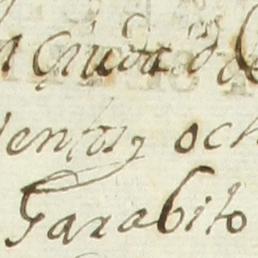 Ciudad d
entos y och
Garabito